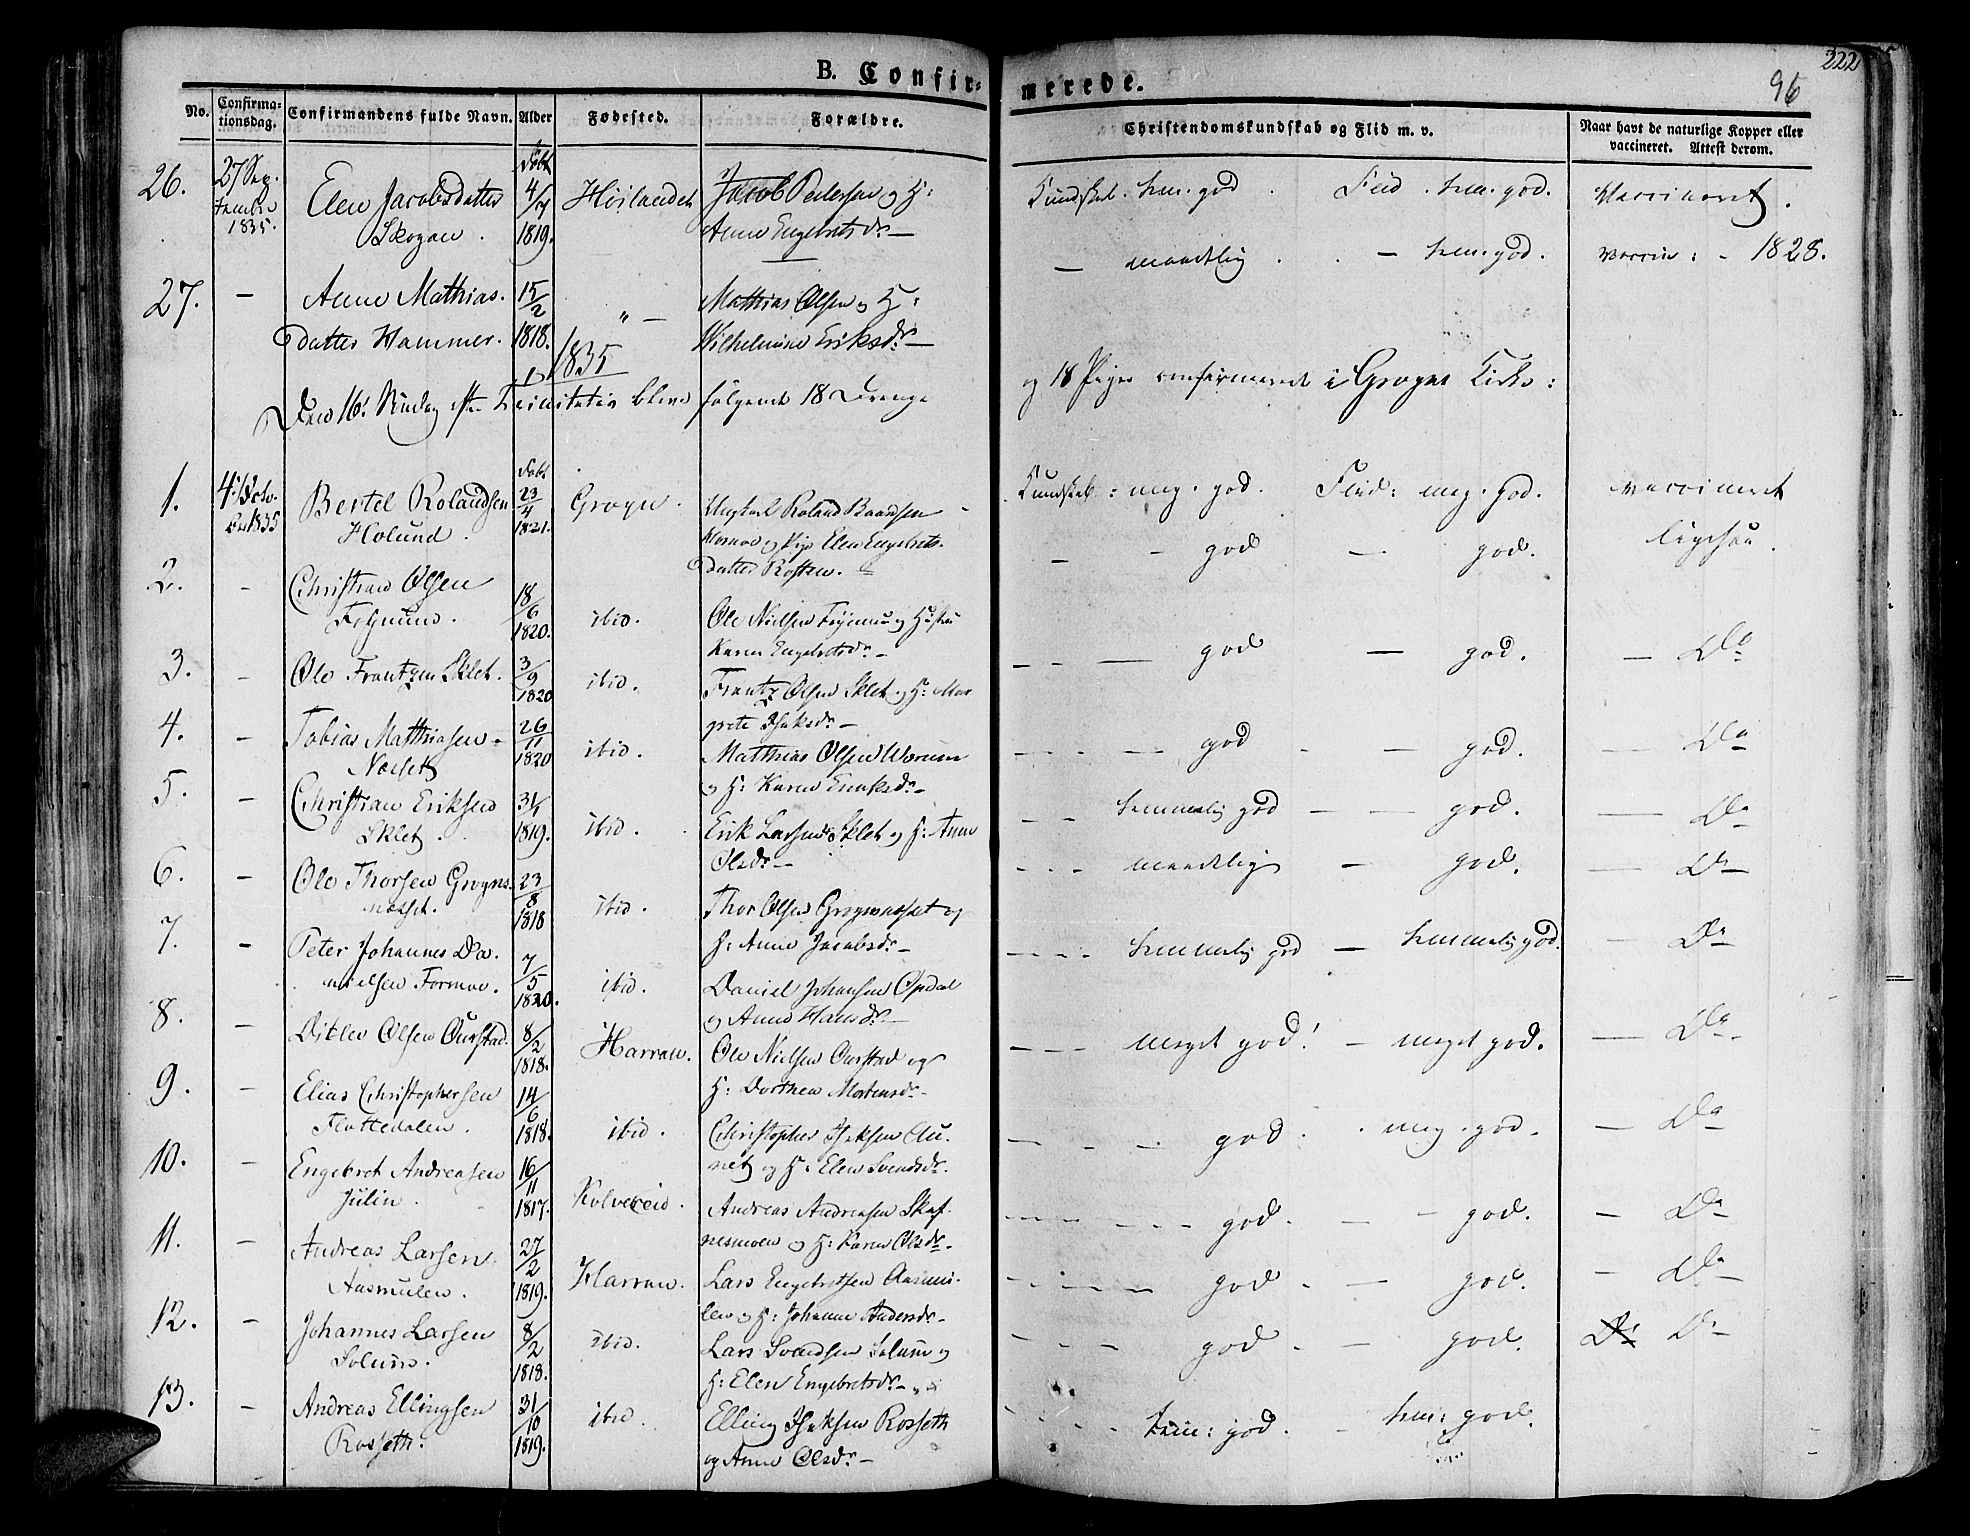 222
96
B. Confir- merede.
No. Confirma-tionsdag. Confirmandens fulde Navn. Alder Fødested. Forældre. Christendomskundskab og Flid m. v. Naar havt de naturlige Kopper eller vaccineret. Attest derom.
26. 27 Sep-tember 1835. Elen Jacobsdatter Skogan. Født 4/7 1819. Høilandet Jacob Pedersen og H: Anne Engebretsdr. — Kundskab. tem. god. Flid. tem. god. Vaccineret.
27. — Anne Mathias-datter Hammer. 15/2 1818. " — Mathias Olsen og H: Wilhelmine Eriksdr. — — maadelig. — tem. god. vaccin: - 1828.
1835
Den 16. Søndag efter Trinitatis bleve følgende 18 Drenge og 18 Piger confirmeret i Grogns Kirke:
1. 4. Octo-ber 1835 Bertel Rolandsen Holund. Født 23/4 1821. Grogn. Ungkarl Roland Baardsen og Pige Elen Engebrets-datter Rosten. — Kundskab: meg. god. Flid: meg. god. vaccineret
2. — Christian Olsen 18/6 1820. ibid. Ole Nielsen og Hustru Karen Engebretsdr. — — - god — god. ligesaa.
3. — Ole Frantzen Sklet. 3/9 1820 ibid. Frantz Olsen Sklet og H: Mar-grete Isaksdr. — — - — god — god. — Do
4. — Tobias Matthiasen Nesset 26/11 1820 ibid. Matthias Olsen Worum og H: Karen — — - — god - — god. — Do
5. — Christian Eriksen Sklet. 31/1 1819. ibid. Erik Larsen Sklet og H: Anne Olsdr. — — - temmelig god — — god. — Do
6. — Ole Thorsen Grogns-nesset. 23/8 1818 ibid. Thor Olsen Grognsnesset og H: Anne Jacobsdr. — - - - maadelig — god. — Do
7. — Peter Johannes Da-nielsen Formoe. 7/5 1820. ibid. Daniel Johansen Opdal og Anne Hansdr. — - - - temmelig god — temmelig god. — Do
8. — Ditlev Olsen Ourstad. 8/2 1818. Harran. Ole Nielsen Ourstad og H: Dorthea Mortensdr. - - - - meget god! - meget god. — Do
9. — Elias Christophersen Flottedalen. 14/6 1818. ibid. Christopher Isaksen Au-net og H: Elen Svendsdr. — - - god. meg. god. — Do
10. — Engebret Andreasen Julin. 16/11 1817. Kolvereid. Andreas Andreasen Skaf-nesmoen og H: Karen Olsdr. - - - - god. — - god. — Do
11. — Andreas Larsen Aasmulen. 27/2 1819. Harran. Lars Engebretsen Aasmu-len og H: Johanna Andersdr. - - - - god — god. — Do
12. — Johannes Larsen Solum. 8/2 1818. ibid. Lars Svendsen Solum og H: Elen Engebretsdr. - - - god - — god. Do Do
13. — Andreas Ellingsen Rosseth. 31/10 1819. ibid. Elling Isaksen Rosseth og Anne Olsdr. — - - tem: god. - tem: god.